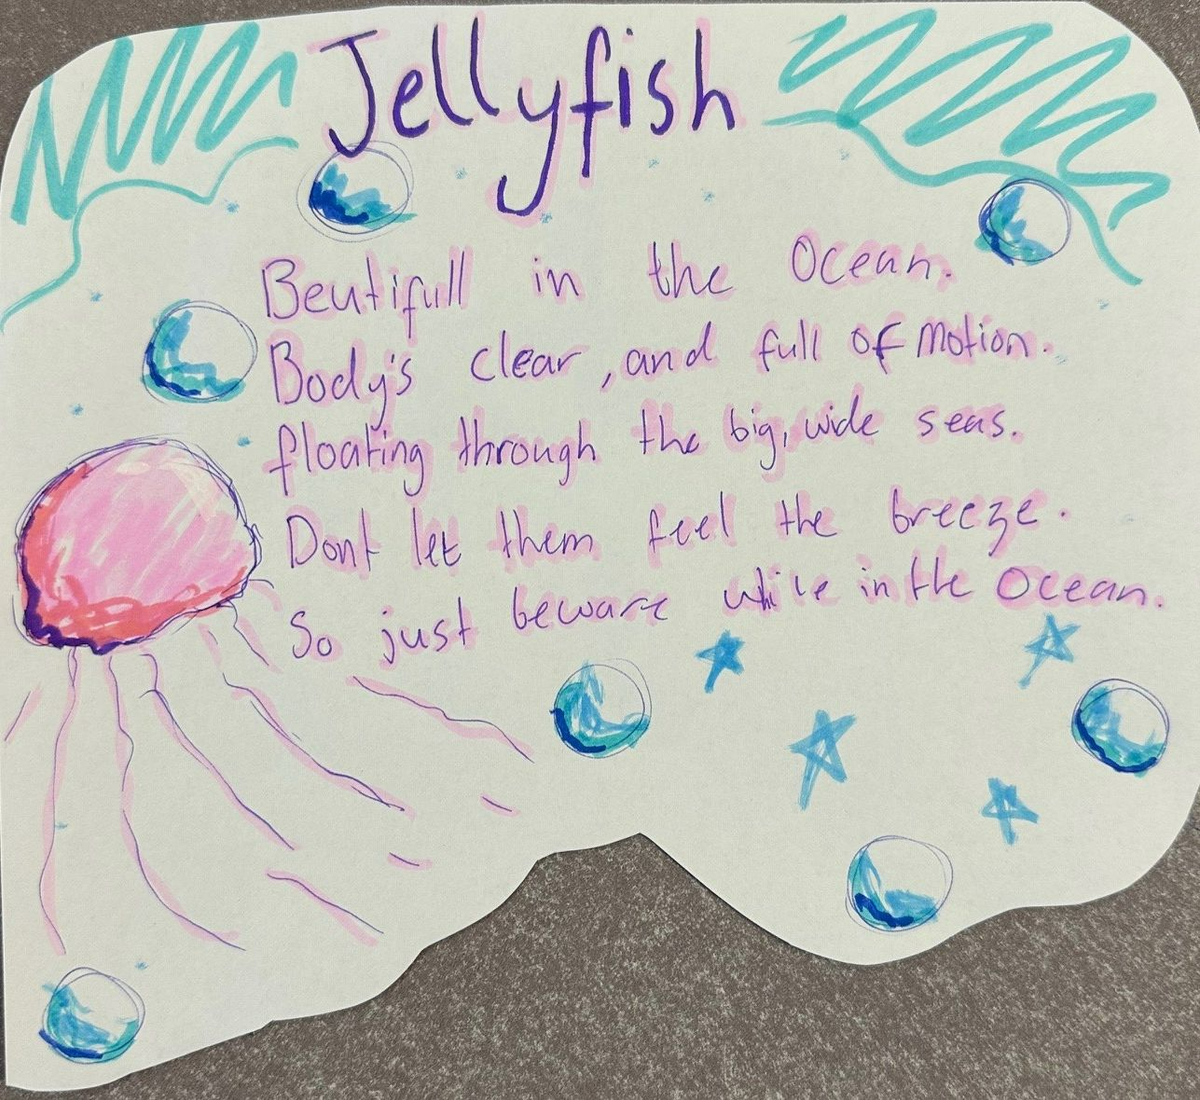 Jellyfish
Beutifull in the Ocean.
Body's clear, and full of motion.
floating through the big, wide seas.
Dont let them feel the breeze.
So just beware while in the Ocean.